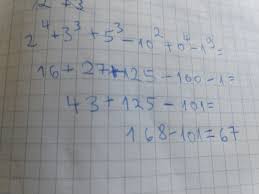 2⁴+3³+5³-10²+0⁴-1⁹=
16+27+125-100-1=
43+125-101=
168-101=67